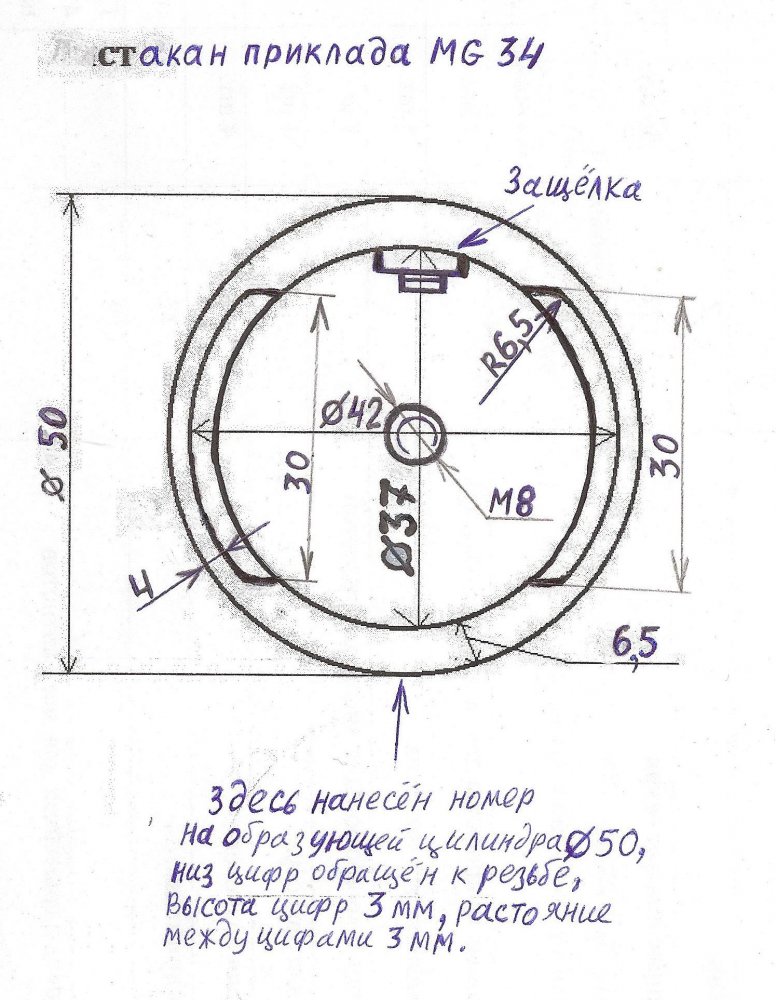 стакан приклада MG 34
Защёлка
R6,5
Ø42
Ø 50
30
30
M8
Ø37
4
6,5
Здесь нанесён номер
на образующей цилиндра Ø50,
низ цифр обращён к резьбе,
высота цифр 3 мм, растояние
между цифами 3 мм.